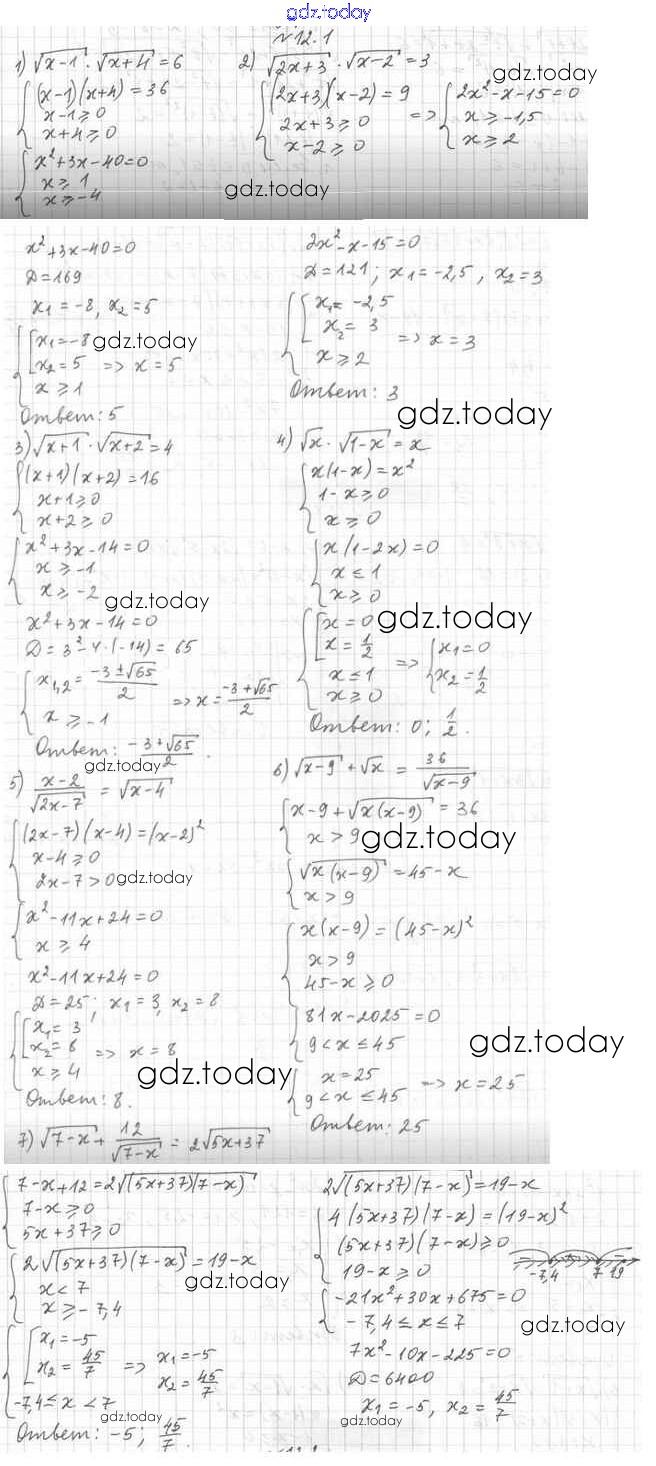 gdz.today
№12.1
1) √(x-1) · √(x+4) = 6
{ (x-1)(x+4) = 36
x-1 ⩾ 0
x+4 ⩾ 0
{ x²+3x-40=0
x ⩾ 1
x ⩾ -4
2) √(2x+3) · √(x-2) = 3
{ (2x+3)(x-2) = 9
2x+3 ⩾ 0
x-2 ⩾ 0
=> { 2x²-x-15=0
x ⩾ -1,5
x ⩾ 2
gdz.today
gdz.today
x²+3x-40=0
D=169
x₁ = -8, x₂ = 5
{ [ x₁=-8
x₂=5 => x=5
x ⩾ 1
Ответ: 5
gdz.today
2x²-x-15=0
D=121; x₁=-2,5, x₂=3
{ [ x₁= -2,5
x₂= 3 => x=3
x ⩾ 2
Ответ: 3
gdz.today
3) √(x+1) · √(x+2) = 4
{ (x+1)(x+2) = 16
x+1 ⩾ 0
x+2 ⩾ 0
{ x²+3x-14=0
x ⩾ -1
x ⩾ -2
gdz.today
x²+3x-14=0
D = 3²-4·(-14) = 65
{ x₁,₂ = (-3±√65)/2
x ⩾ -1 => x = (-3+√65)/2
Ответ: (-3+√65)/2.
gdz.today
4) √x · √(1-x) = x
{ x(1-x) = x²
1-x ⩾ 0
x ⩾ 0
{ x(1-2x) = 0
x ⩽ 1
x ⩾ 0
{ [ x=0
x = 1/2
x ⩽ 1
x ⩾ 0
=> { x₁=0
x₂=1/2
gdz.today
Ответ: 0; 1/2.
5) (x-2)/√(2x-7) = √(x-4)
{ (2x-7)(x-4) = (x-2)²
x-4 ⩾ 0
2x-7 > 0
gdz.today
{ x²-11x+24=0
x ⩾ 4
x²-11x+24=0
D=25; x₁=3, x₂=8
{ [ x₁=3
x₂=8 => x=8
x ⩾ 4
gdz.today
Ответ: 8.
6) √(x-9) + √x = 36/√(x-9)
{ x-9+√(x(x-9)) = 36
x > 9
gdz.today
{ √(x(x-9)) = 45-x
x > 9
{ x(x-9) = (45-x)²
x > 9
45-x ⩾ 0
{ 81x-2025=0
9 < x ⩽ 45
gdz.today
{ x=25
9 < x ⩽ 45 => x=25
Ответ: 25
7) √(7-x) + 12/√(7-x) = 2√(5x+37)
{ 7-x+12=2√((5x+37)(7-x))
7-x ⩾ 0
5x+37 ⩾ 0
{ 2√((5x+37)(7-x)) = 19-x
x < 7
x ⩾ -7,4
gdz.today
{ [ x₁=-5
x₂=45/7
-7,4 ⩽ x < 7
=> x₁=-5
x₂=45/7
gdz.today
Ответ: -5; 45/7.
2√((5x+37)(7-x)) = 19-x
{ 4(5x+37)(7-x) = (19-x)²
(5x+37)(7-x) ⩾ 0
19-x ⩾ 0
-7,4 7 19
{ -21x²+30x+675=0
-7,4 ⩽ x ⩽ 7
gdz.today
7x²-10x-225=0
D=6400
x₁=-5, x₂=45/7
gdz.today